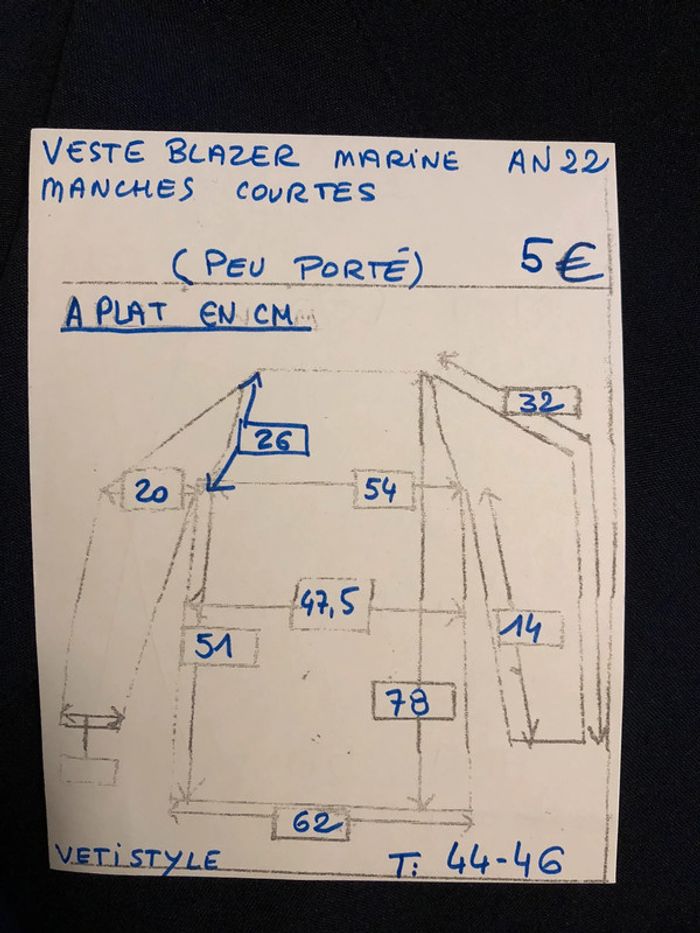 VESTE BLAZER MARINE AN 22
MANCHES COURTES
(PEU PORTÉ) 5€
A PLAT EN CM
32
26
20
54
47,5
51
14
78
62
VETISTYLE T: 44-46